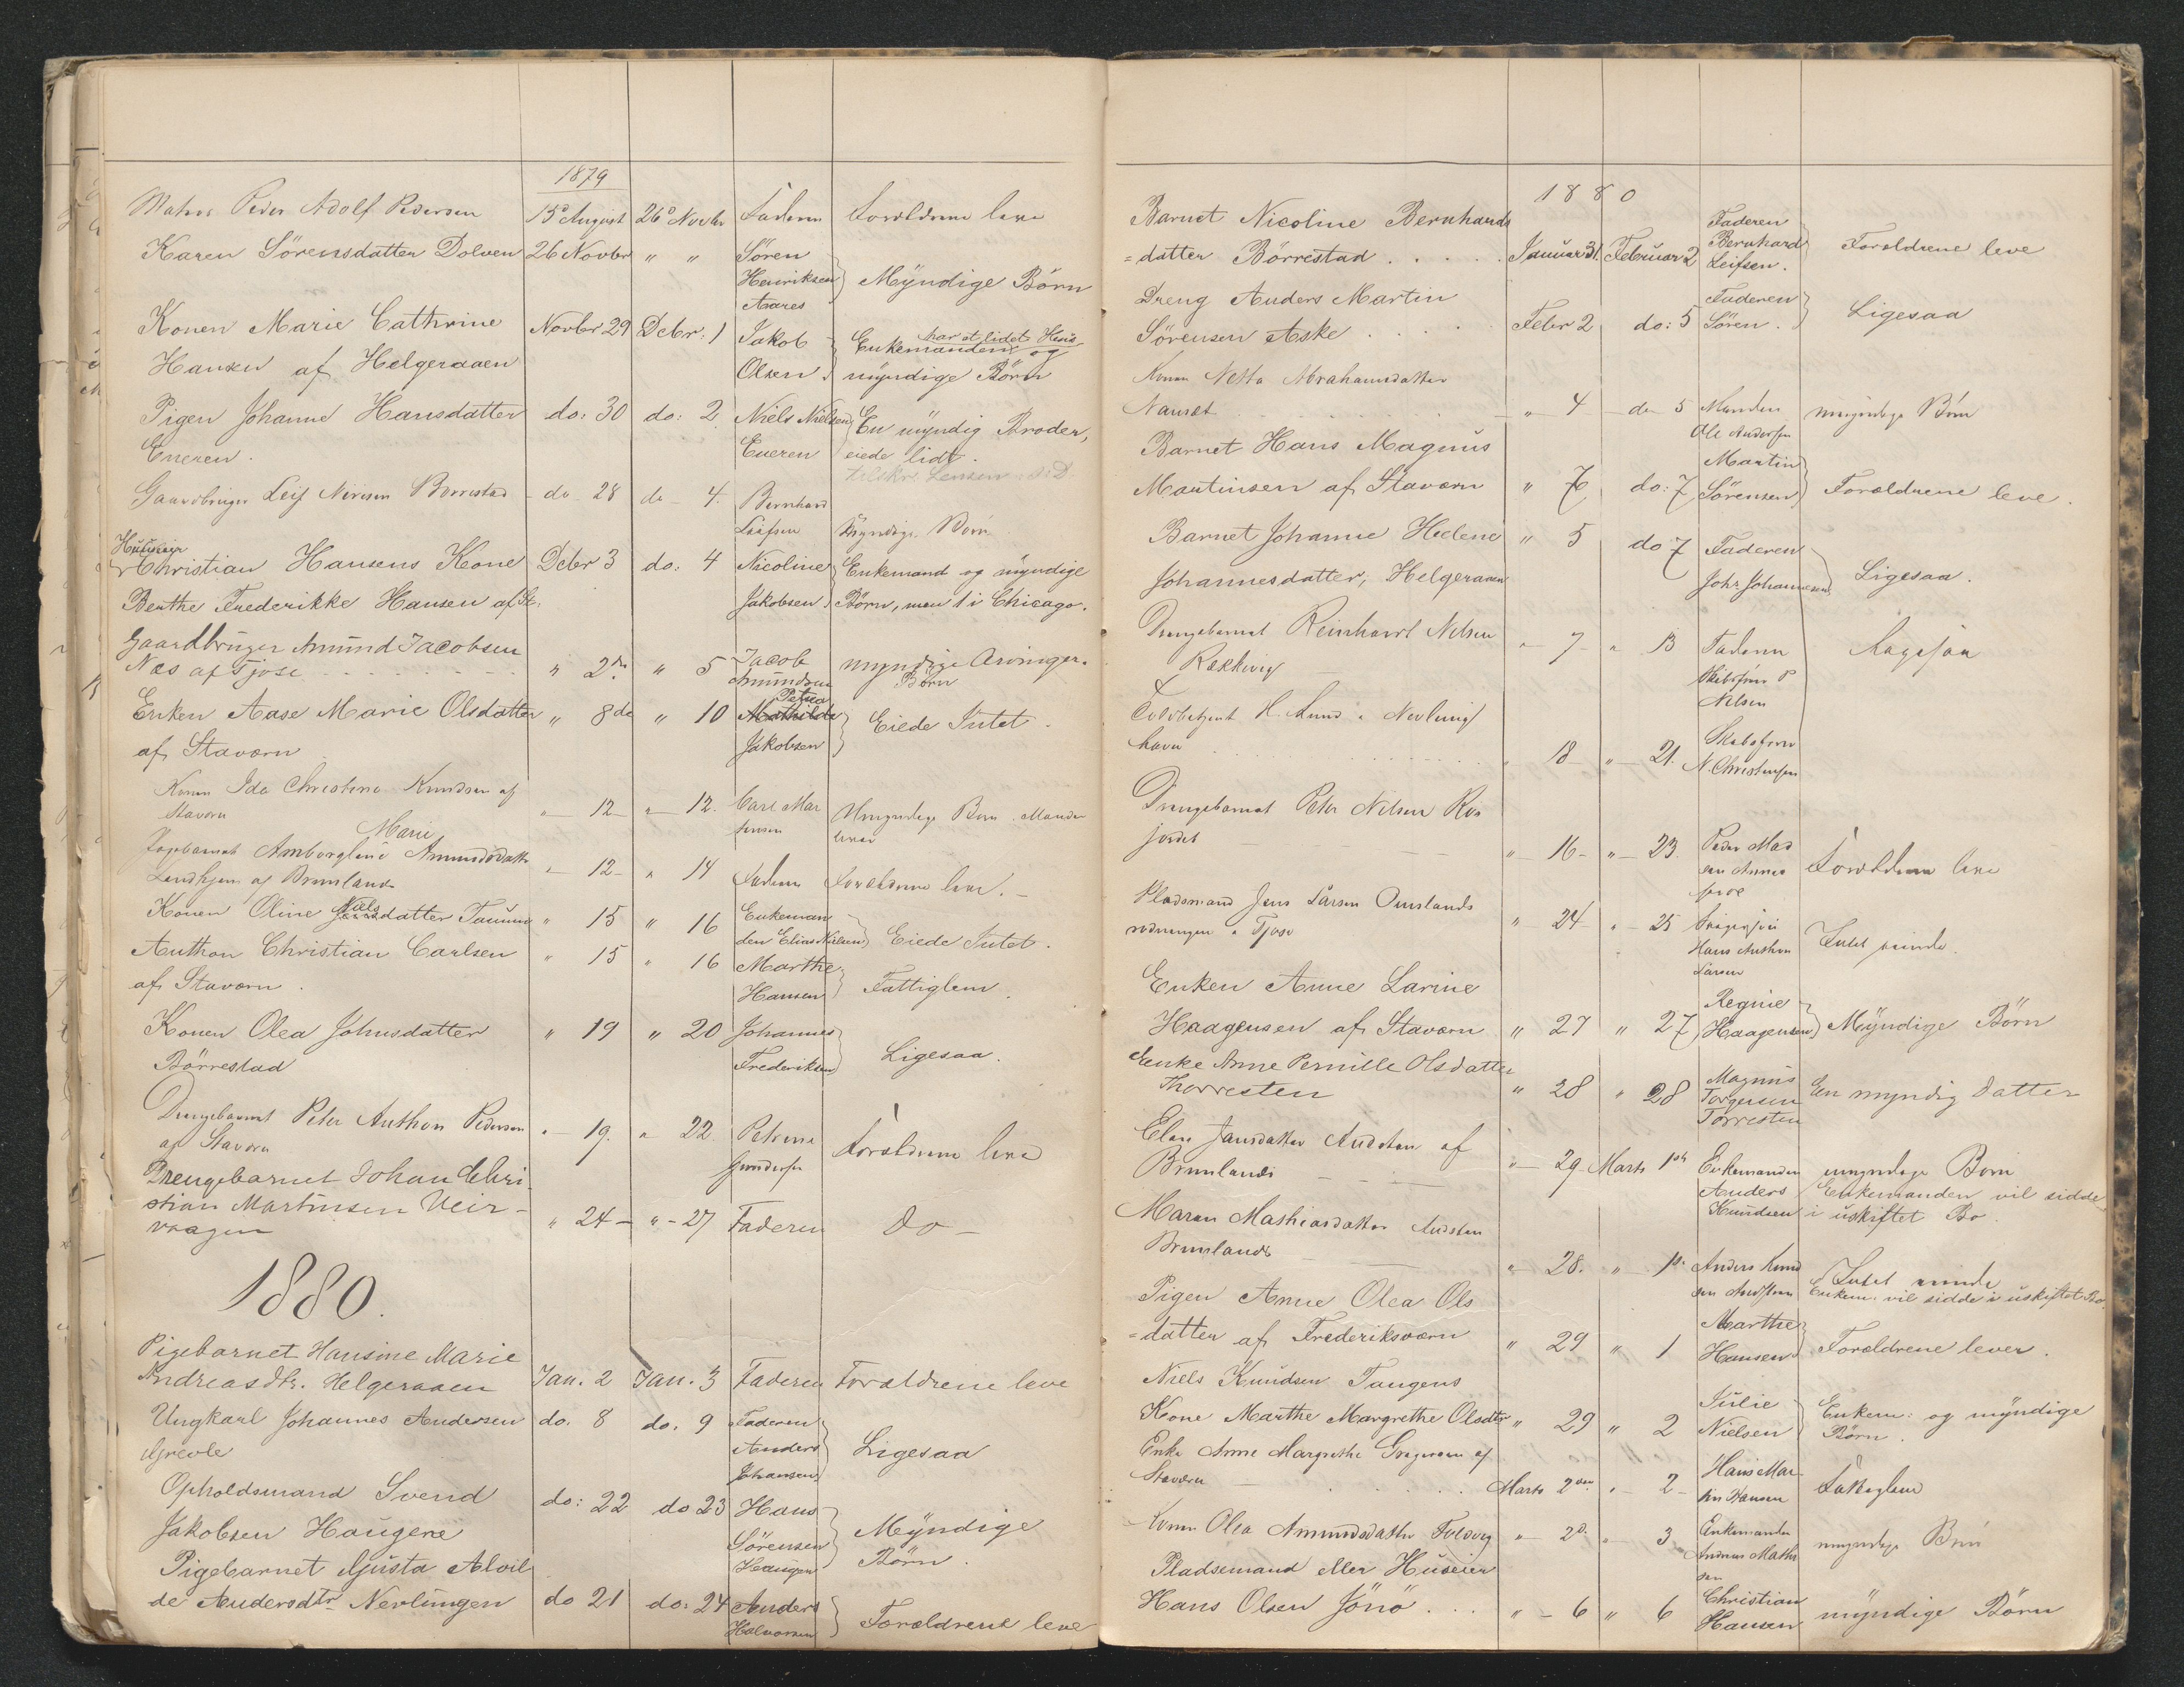 1879
Matros Peder Adolf Pedersen 15de August 26de Novbr Faderen Forældrene leve
Karen Sörensdatter Dolven 26 Novbr " " Sören
Henriksen Myndige Börn
Aares
Konen Marie Cathrine Novbr 29 Debr: 1 Jakob Enkemanden har et lidet Huus og
Hansen af Helgeraaen Olsen. myndige Börn
Pigen Johanne Hansdatter do: 30 do: 2 Niels Nielsen En myndig Broder,
Eneren. Eneren eiede lidt.
Gaardbruger Leif Börrestad do 28 do 4. Bernhard
Leifsen Myndige Börn
Huuseier
Christian Hansens Kone Debr 3 do: 4 Nicoline Enkemand og myndige
Berthe Frederikke Hansen af St. Jakobsen Börn, men 1 i Chicago.
Gaardbruger Amund Jacobsen
Næs af Tjose " 2de " 5 Jacob Amundsen myndige Arvinger. Börn
Enken Aase Marie Olsdatter " 8de " 10 Petrea
af Staværn Jakobsen Eiede Intet.
Konen Ida Christine Knudsen af
Stavern " 12 " 12. Carl Mar
tensen Umyndige Born. Manden
lever
Marie
Amundsdatter
" 12 " 14 Faderen Forældrene leve.
Konen Oline Nielsdatter " 15 " 16 Enkeman
den Elias Nielsen Eiede Intet.
Anthon Christian Carlsen " 15 " 16 Marthe
af Staværn. Hansen Fattiglem.
Konen Olea Johnsdatter " 19 " 20 Johannes
Börrestad Frederiksen Ligesaa.
Drengebarnet Peter Anthon Pedersen
af Stavern " 19. " 22. Petrine
Gundersen Forældrene leve
Drengebarnet Johan Chri-
stian Martinsen Veir-
vaagen " 24 " 27 Faderen do
1880.
Pigebarnet Hansine Marie
Andreasdtr. Helgeraaen Jan. 2 Jan. 3 Faderen Forældrene leve
Ungkarl Johannes Andersen do. 8 do. 9 Faderen
Agnevle Anders
Johansen Ligesaa
Opholdsmand Svend do: 22 do 23 Hans
Jakobsen Haugene Sörensen Myndige
Haugen Börn.
Pigebarnet Gusta Alvil
de Andersdtr Nevlungen do 21 do: 24 Anders
Halvorsen Forældrene leve
1880
Barnet Nicoline Bernhards
=datter Börrestad . . . . . Januar 31. Februar 2 Faderen Bernhard Leifsen. Forældrene leve
Dreng Anders Martin
Sörensen Aske . . . . Febr 2 do: 5 Faderen Sören. Ligesaa
Konen Netta Abrahamsdatter
Nauset " 4 do 5 Manden
Ole Andersen myndige Börn
Barnet Hans Magnus
Martinsen af Staværn " 7 do: 7 Martin Sörensen Forældrene leve.
Barnet Johanne Helene " 5 do 7 Faderen
Johannesdatter, Helgeraaen Johs Johannesen Ligesaa.
Drengebarnet Reinhard Nilsen
Rækkevig " 7 " 13 Faderen
P
Nilsen Ligesaa
Toldbetjent H. Lund i Nevlung
havn " 18 " 21.
N. Christensen
Drengebarnet Peter Nilsen Ros
jordet " 16 " 23. Peder Mad
sen Forældrene leve
Pladsmand Jens Larsen Omslands
rødningen i Tjose " 24 " 25
Hans Anthon
Larsen Intet eiende.
Enken Anne Larine
Haagensen af Staværn " 27 " 27 Regine Haagensen Myndige Börn
Enke Anne Pernille Olsdatter
Thorresten " 28 " 28 Magnus
Torgersen
Torresten En myndig Datter
Elen Jansdatter Austeen af
Brunlands " 29 Marts 1ste Enkemanden
Anders
Knudsen umyndige Born
Enkemanden vil sidde
i uskiftet Bo
Maren Mathiasdatter
Brunlands " 28. " 1de Anders Knud
sen Intet eiende
Enkem. vil sidde i uskiftet Bo.
Pigen Anne Olea Ols
=datter af Frederiksværn " 29 " 1 Marthe
Hansen Forældrene lever.
Niels Knudsen Tangens
Kone Marthe Margrethe Olsdtr " 29 " 2 Julie
Nielsen Enkem: og myndige
Börn.
Enke Anne Margrethe Gregersen af
Stavern Marts 2den " 2 Hans Mar
tin Hansen Fattiglem
Konen Olea Amundsdatter Foldvig " 2de " 3 Enkemanden
Andreas Mathi
sen umyndige Börn
Pladsemand eller Huseier
Hans Olsen Jönö . . . " 6 " 6 Christian
Hansen myndige Börn